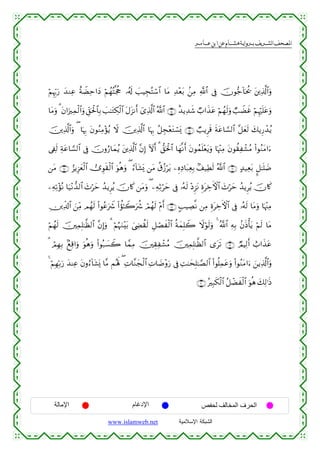 المصحف الشريف برواية هشام عن ابن عامر
وَٱلَّذِينَ يُحَآجُّونَ فِى ٱللَّهِ مِنۢ بَعْدِ مَا ٱسْتُجِيبَ لَهُۥ حُجَّتُهُمْ دَاحِضَةٌ عِندَ رَبِّهِمْ
وَعَلَيْهِمْ غَضَبٌ وَلَهُمْ عَذَابٌ شَدِيدٌ ٱللَّهُ ٱلَّذِىٓ أَنزَلَ ٱلْكِتَٰبَ بِٱلْحَقِّ وَٱلْمِيزَانَ ۗ وَمَا
يُدْرِيكَ لَعَلَّ ٱلسَّاعَةَ قَرِيبٌ يَسْتَعْجِلُ بِهَا ٱلَّذِينَ لَا يُؤْمِنُونَ بِهَا ۖ وَٱلَّذِينَ
ءَامَنُوا۟ مُشْفِقُونَ مِنْهَا وَيَعْلَمُونَ أَنَّهَا ٱلْحَقُّ ۗ أَلَآ إِنَّ ٱلَّذِينَ يُمَارُونَ فِى ٱلسَّاعَةِ لَفِى
ضَلَٰلٍۭ بَعِيدٍ ٱللَّهُ لَطِيفٌۢ بِعِبَادِهِۦ يَرْزُقُ مَن يَشَآءُ ۖ وَهُوَ ٱلْقَوِىُّ ٱلْعَزِيزُ مَن
كَانَ يُرِيدُ حَرْثَ ٱلْأَخِرَةِ نَزِدْ لَهُۥ فِى حَرْثِهِۦ ۖ وَمَن كَانَ يُرِيدُ حَرْثَ ٱلدُّنْيَا نُؤْتِهِۦ
مِنْهَا وَمَا لَهُۥ فِى ٱلْأَخِرَةِ مِن نَّصِيبٍ أَمْ لَهُمْ شُرَكَٰٓؤُا۟ شَرَعُوا۟ لَهُم مِّنَ ٱلدِّينِ
مَا لَمْ يَأْذَنۢ بِهِ ٱللَّهُ ۚ وَلَوْلَا كَلِمَةُ ٱلْفَصْلِ لَقُضِىَ بَيْنَهُمْ ۗ وَإِنَّ ٱلظَّٰلِمِينَ لَهُمْ
عَذَابٌ أَلِيمٌ تَرَى ٱلظَّٰلِمِينَ مُشْفِقِينَ مِمَّا كَسَبُوا۟ وَهُوَ وَاقِعٌۢ بِهِمْ ۗ
وَٱلَّذِينَ ءَامَنُوا۟ وَعَمِلُوا۟ ٱلصَّٰلِحَٰتِ فِى رَوْضَاتِ ٱلْجَنَّاتِ ۖ لَهُم مَّا يَشَآءُونَ عِندَ رَبِّهِمْ ۚ
ذَٰلِكَ هُوَ ٱلْفَضْلُ ٱلْكَبِيرُ
الحرف المخالف لحفص الإدغام الإمالة
الشبكة الإسلامية www.islamweb.net